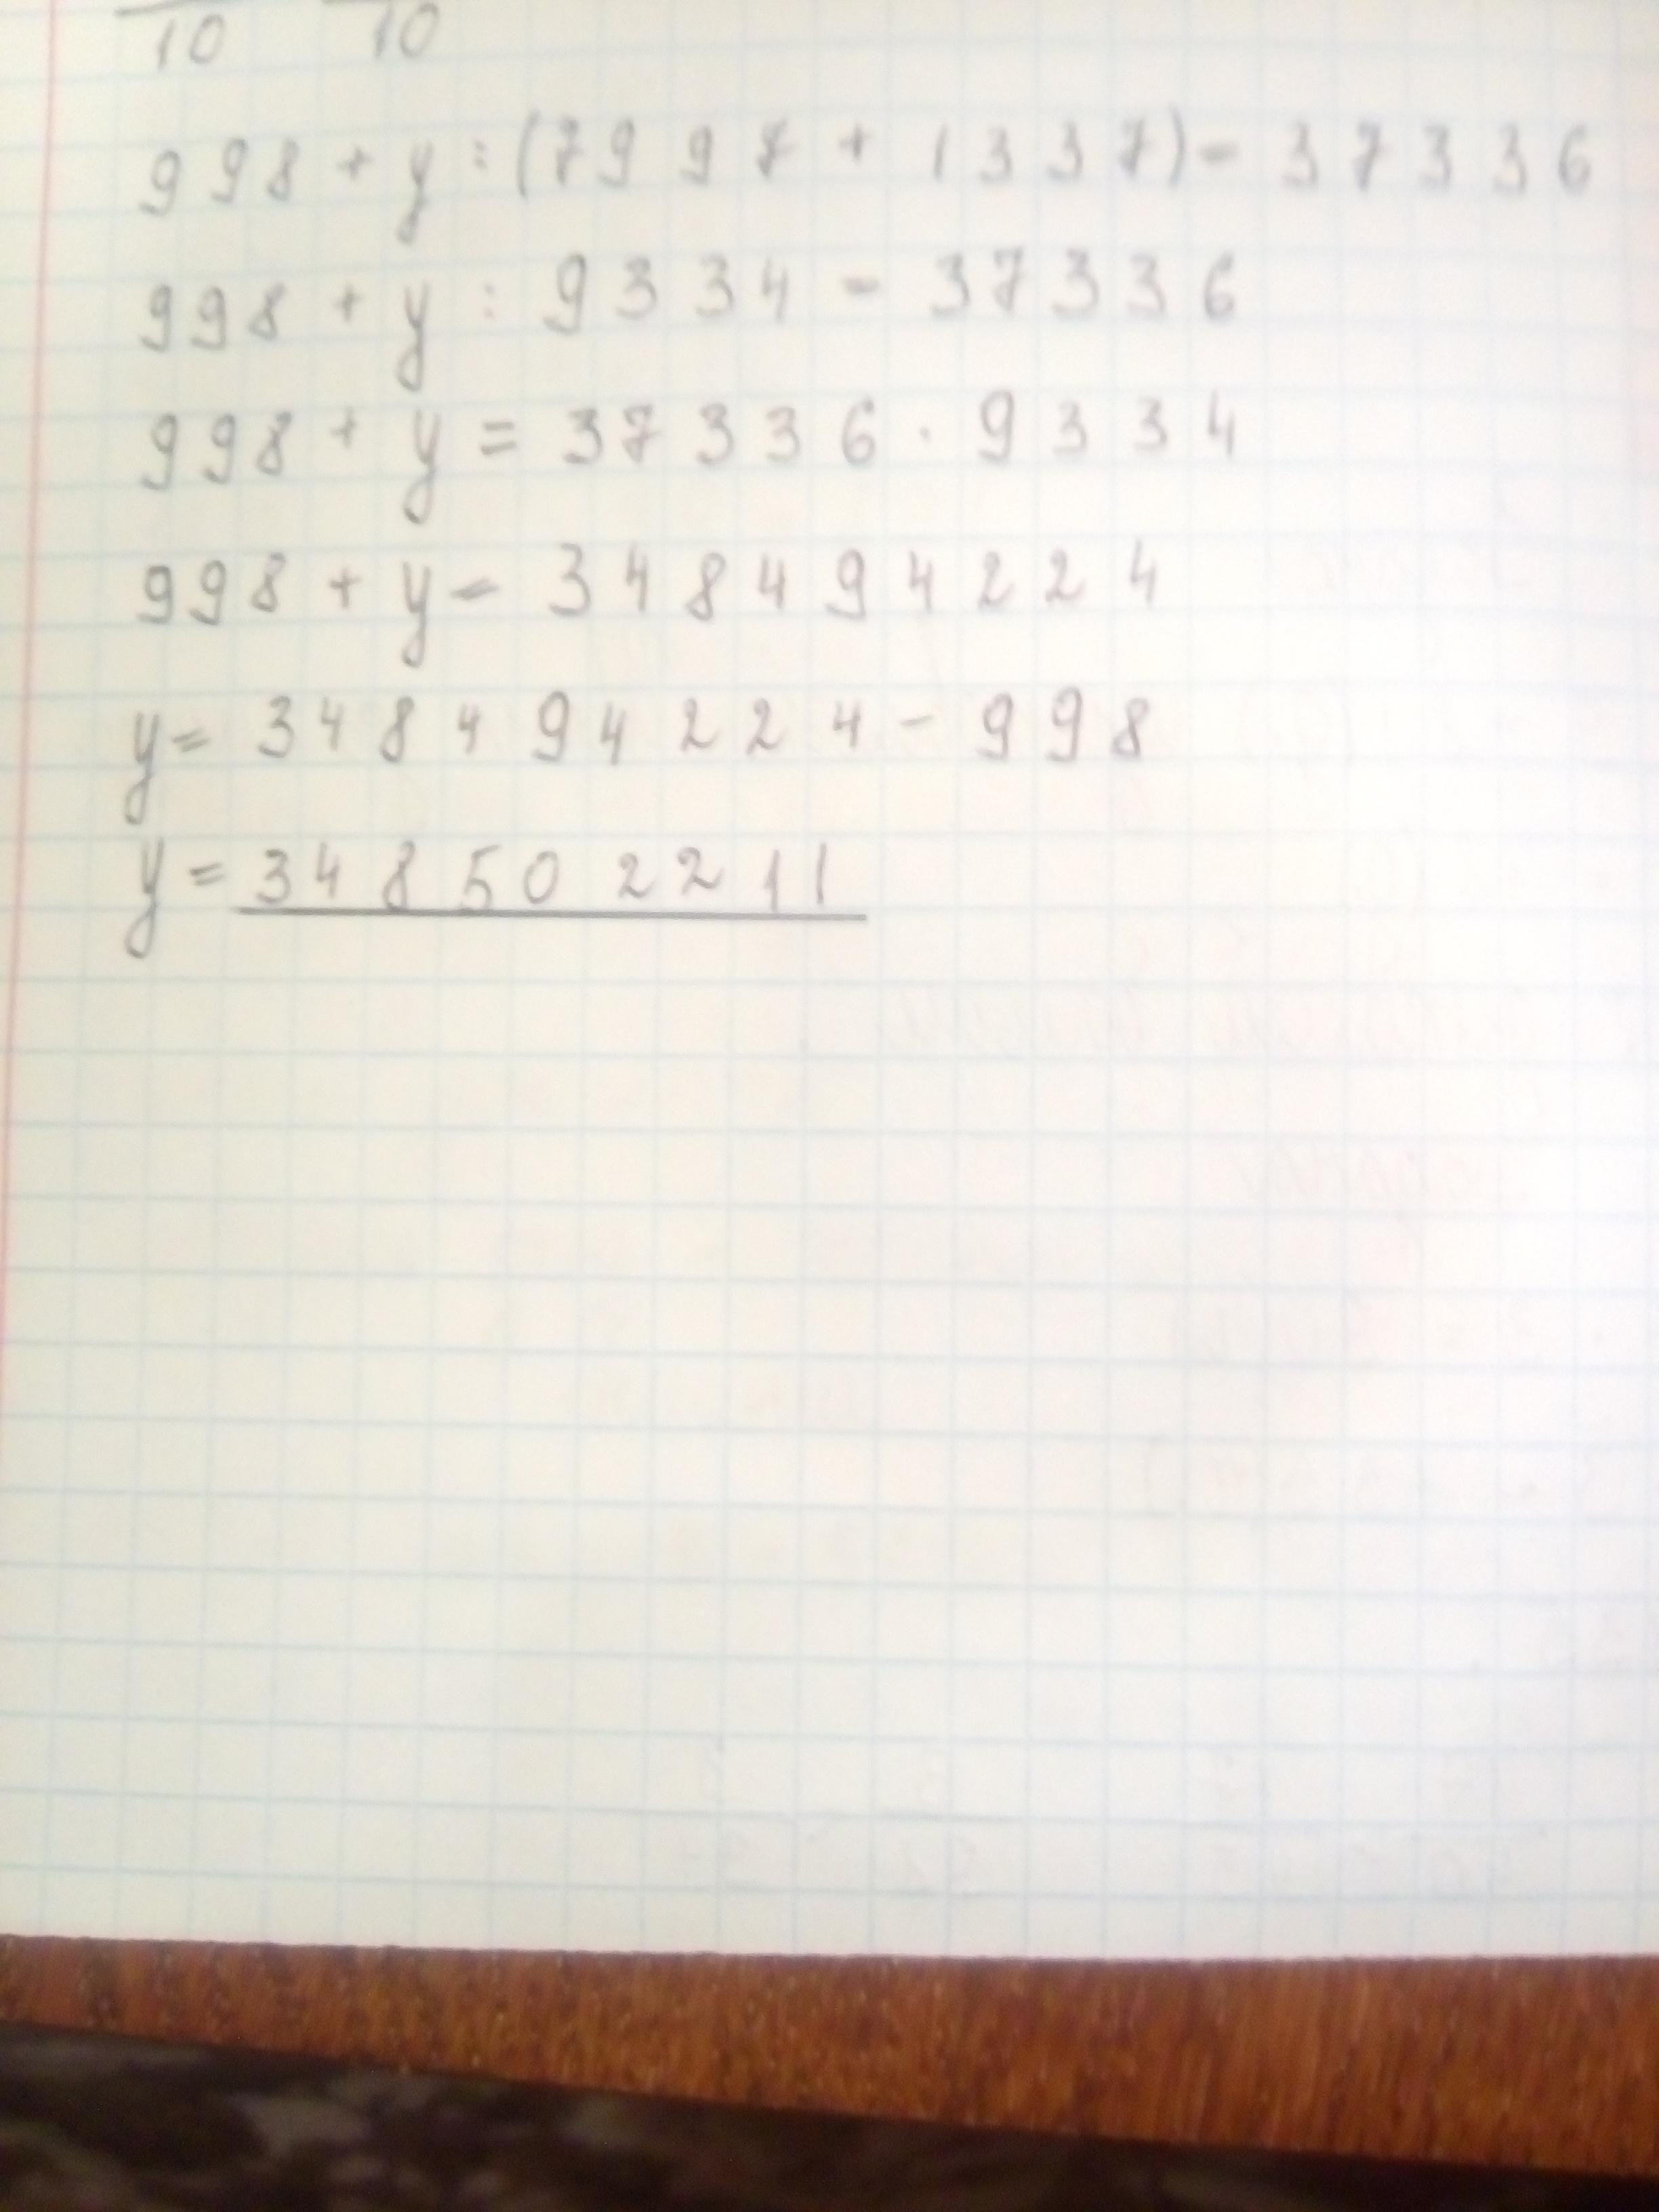 10 10
998 + y : (7997 + 1337) = 37336
998 + y : 9334 = 37336
998 + y = 37336 · 9334
998 + y = 348494224
y = 348494224 - 998
y = 348502211